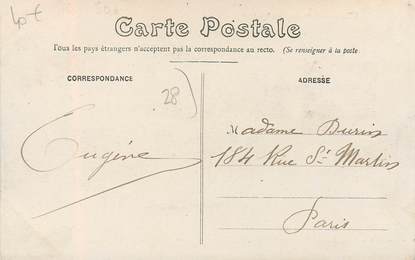 40 €
Carte Postale
Tous les pays étrangers n'acceptent pas la correspondance au recto. (Se renseigner à la poste
CORRESPONDANCE
ADRESSE
28
Eugène
Madame Durin
184 Rue St Martin
Paris